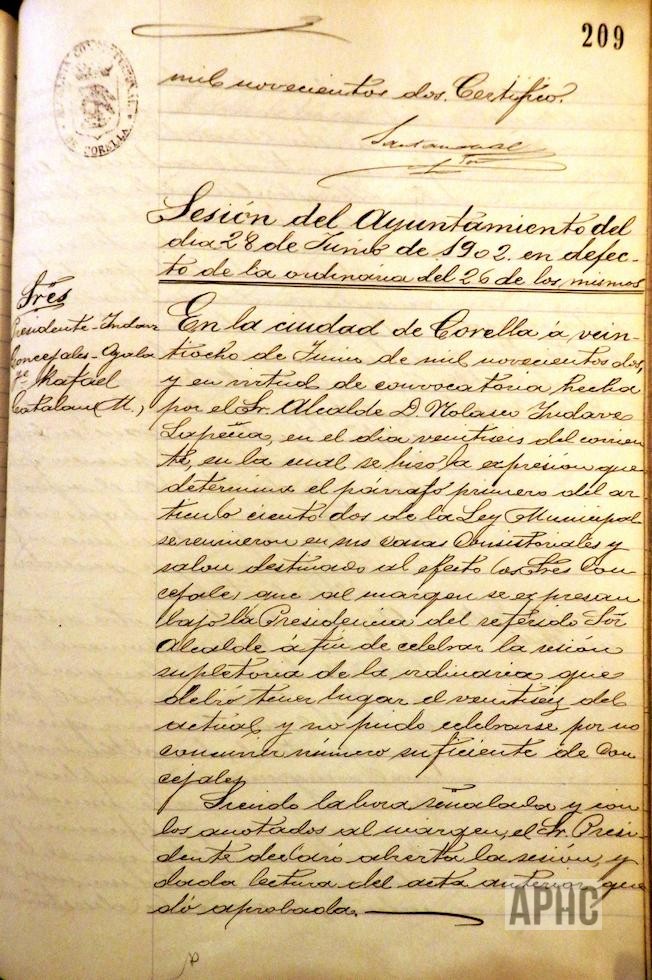 209
ALCALDIA CONSTITUCIONAL DE CORELLA
mil novecientos dos. Certifico.
Sesión del Ayuntamiento del
dia 28 de Junio de 1902. en defec-
to de la ordinaria del 26 de los mismos
Sres
Presidente-Indave
Concejales-Ayala
Rafael
Catalan (M.)
En la ciudad de Corella á vein-
tiocho de Junio de mil novecientos dos,
y en virtud de convocatoria hecha
por el Sr. Alcalde D. Nolasco Indave
Lapeña, en el dia veintiseis del corrien
te, en la cual se hisó la expresión que
determina el párrafo primero del ar-
ticulo ciento dos de la Ley Municipal
se reunieron en sus casas Consistoriales y
salon destinado al efecto los Sres Con
cejales que al margen se expresan
bajo la Presidencia del referido Sor
Alcalde á fin de celebrar la sesión
supletoria de la ordinaria que
debió tener lugar el veintiseis del
actual, y no pudo celebrarse por no
concurrir número suficiente de Con
cejales
Siendo la hora señalada y con
los anotados al margen, el Sr. Presi-
dente declaró abierta la sesión, y
dada lectura del acta anterior que
dó aprobada.
APHC